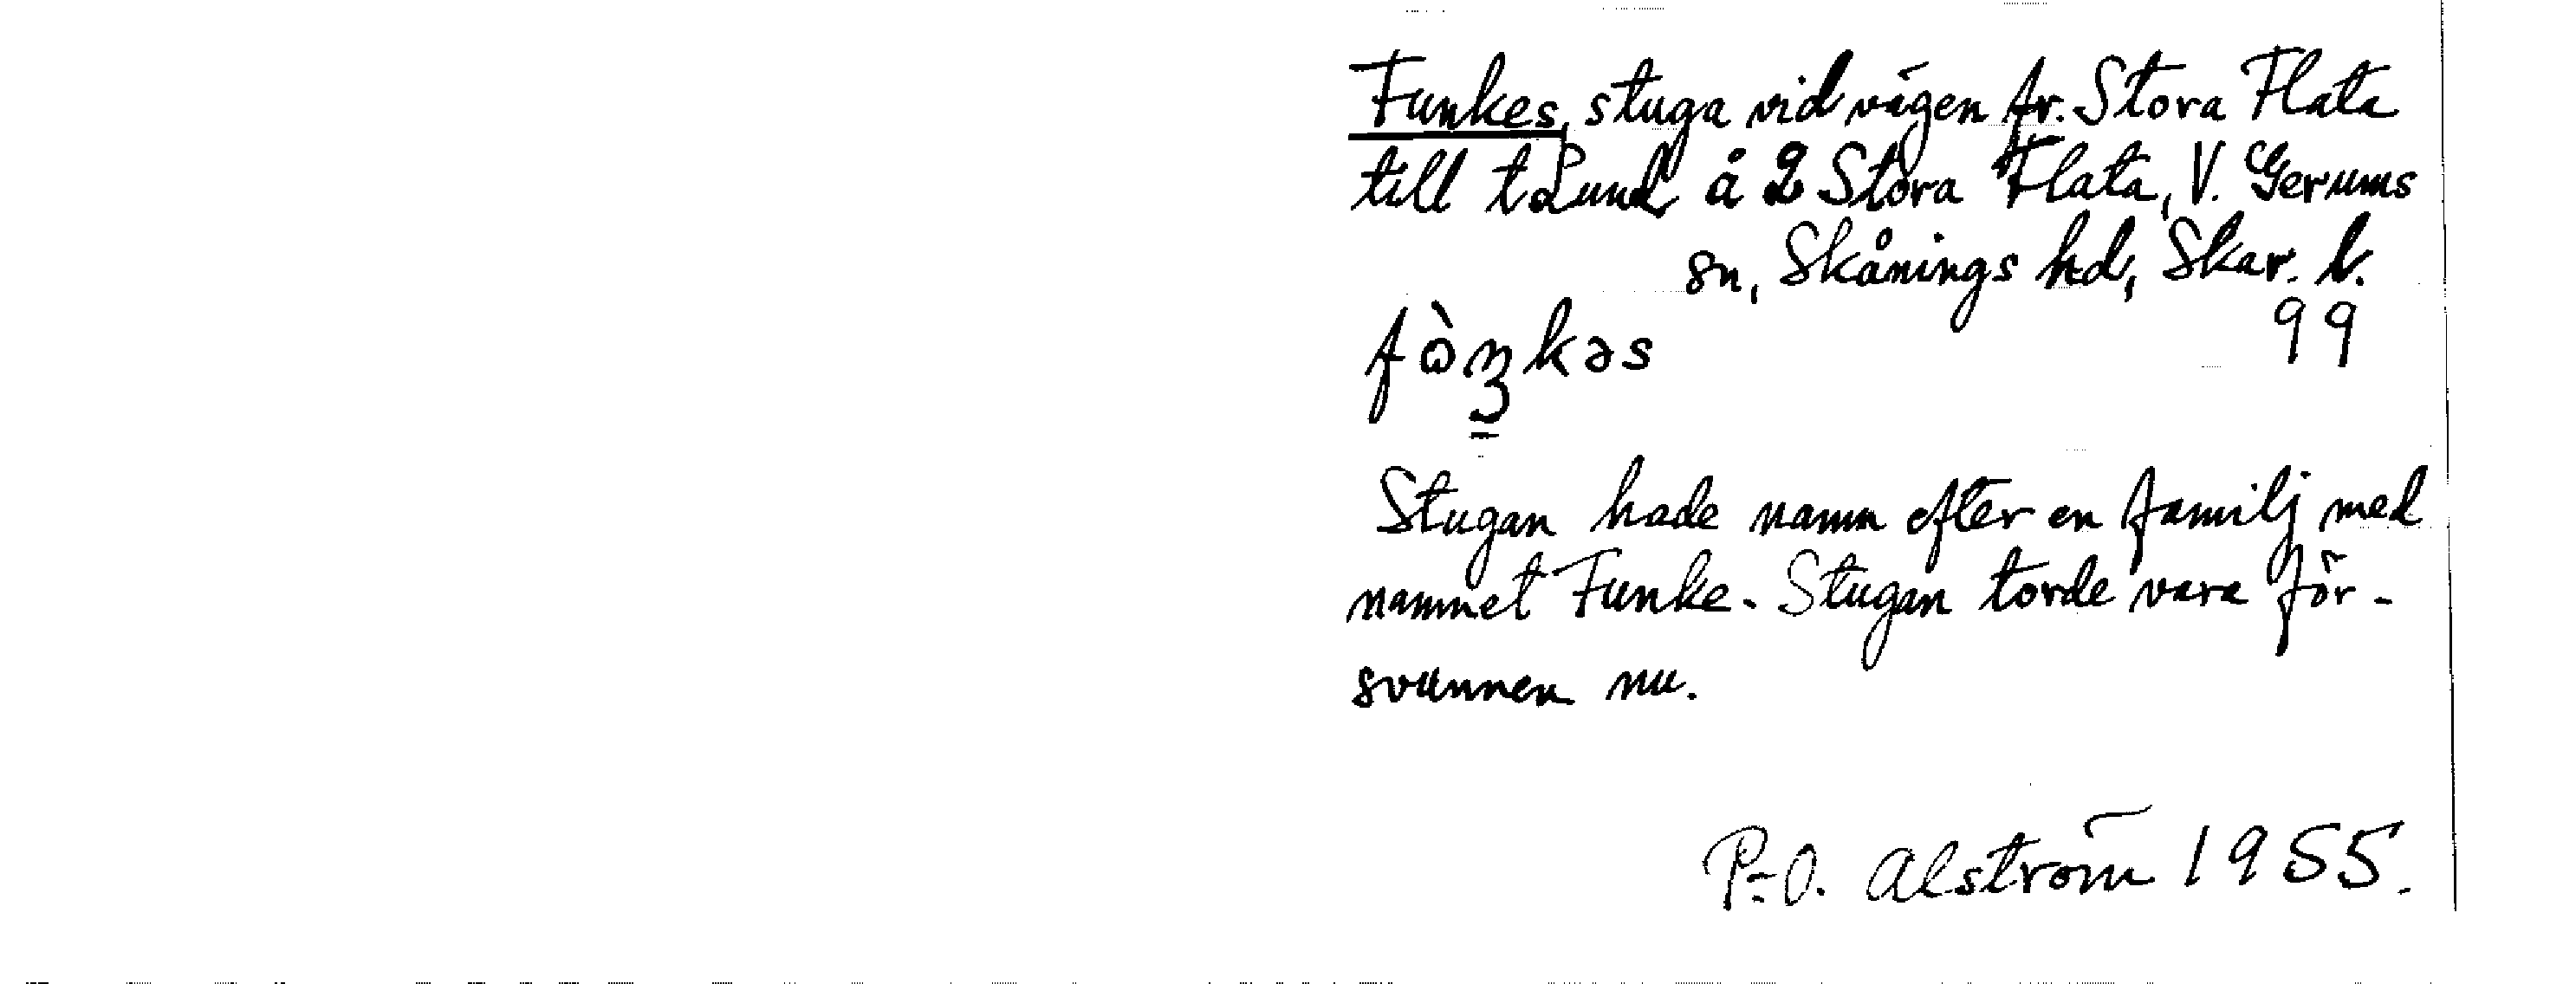 Funkes, stuga vid vägen fr. Stora Flata
till t Lund å 2 Stora Flata, V. Gerums
sn, Skånings hd, Skar. l.
99
Stugan hade namn efter en familj med
namnet Funke. Stugan torde vara för-
svunnen nu.
P-O. Alström 1955.